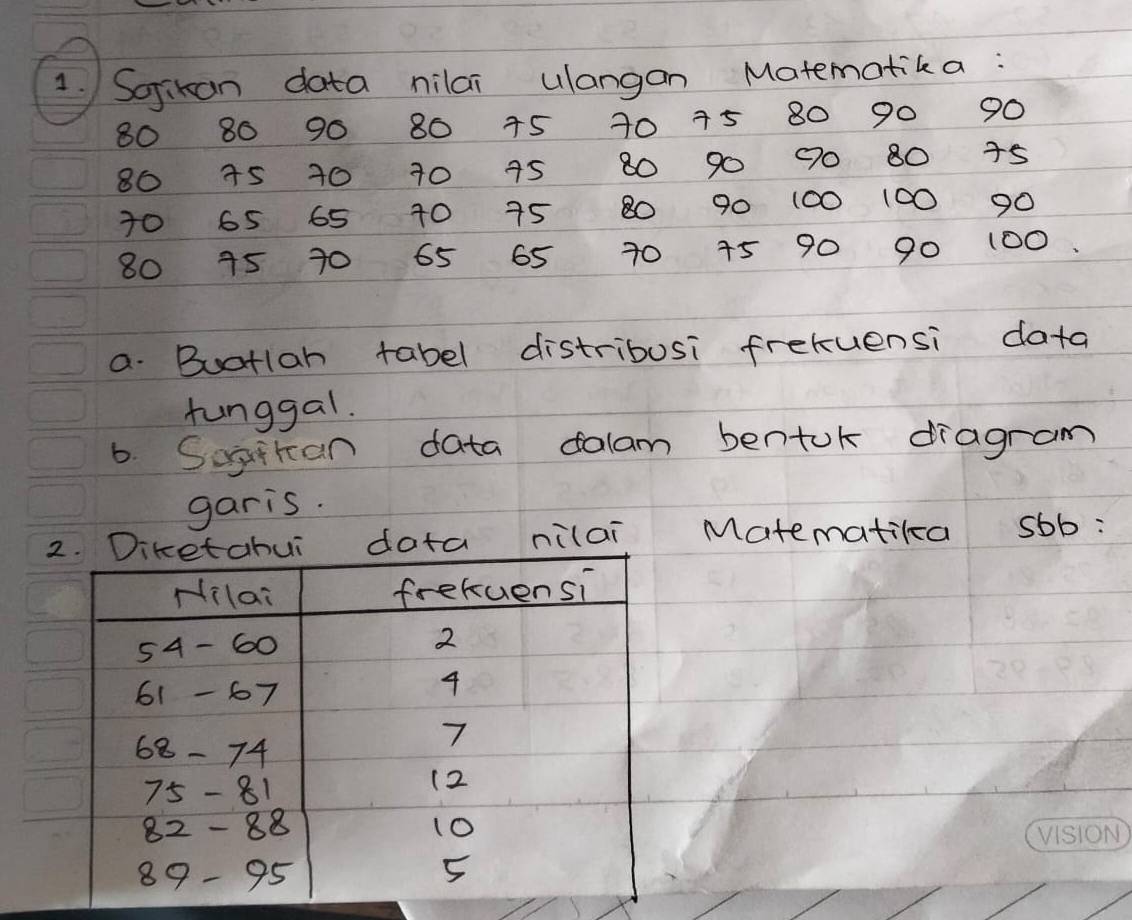 1. Sajikan data nilai ulangan Matematika :
80 80 90 80 75 70 75 80 90 90
80 75 70 70 75 80 90 90 80 75
70 65 65 70 75 80 90 100 100 90
80 75 70 65 65 70 75 90 90 100.
a. Buatlah tabel distribusi frekuensi data
tunggal.
b. Sajikan data dalam bentuk diagram
garis.
2. Diketahui data nilai Matematika sbb :
Nilai frekuensi
54 - 60 2
61 - 67 4
68 - 74 7
75 - 81 12
82 - 88 10
89 - 95 5
VISION